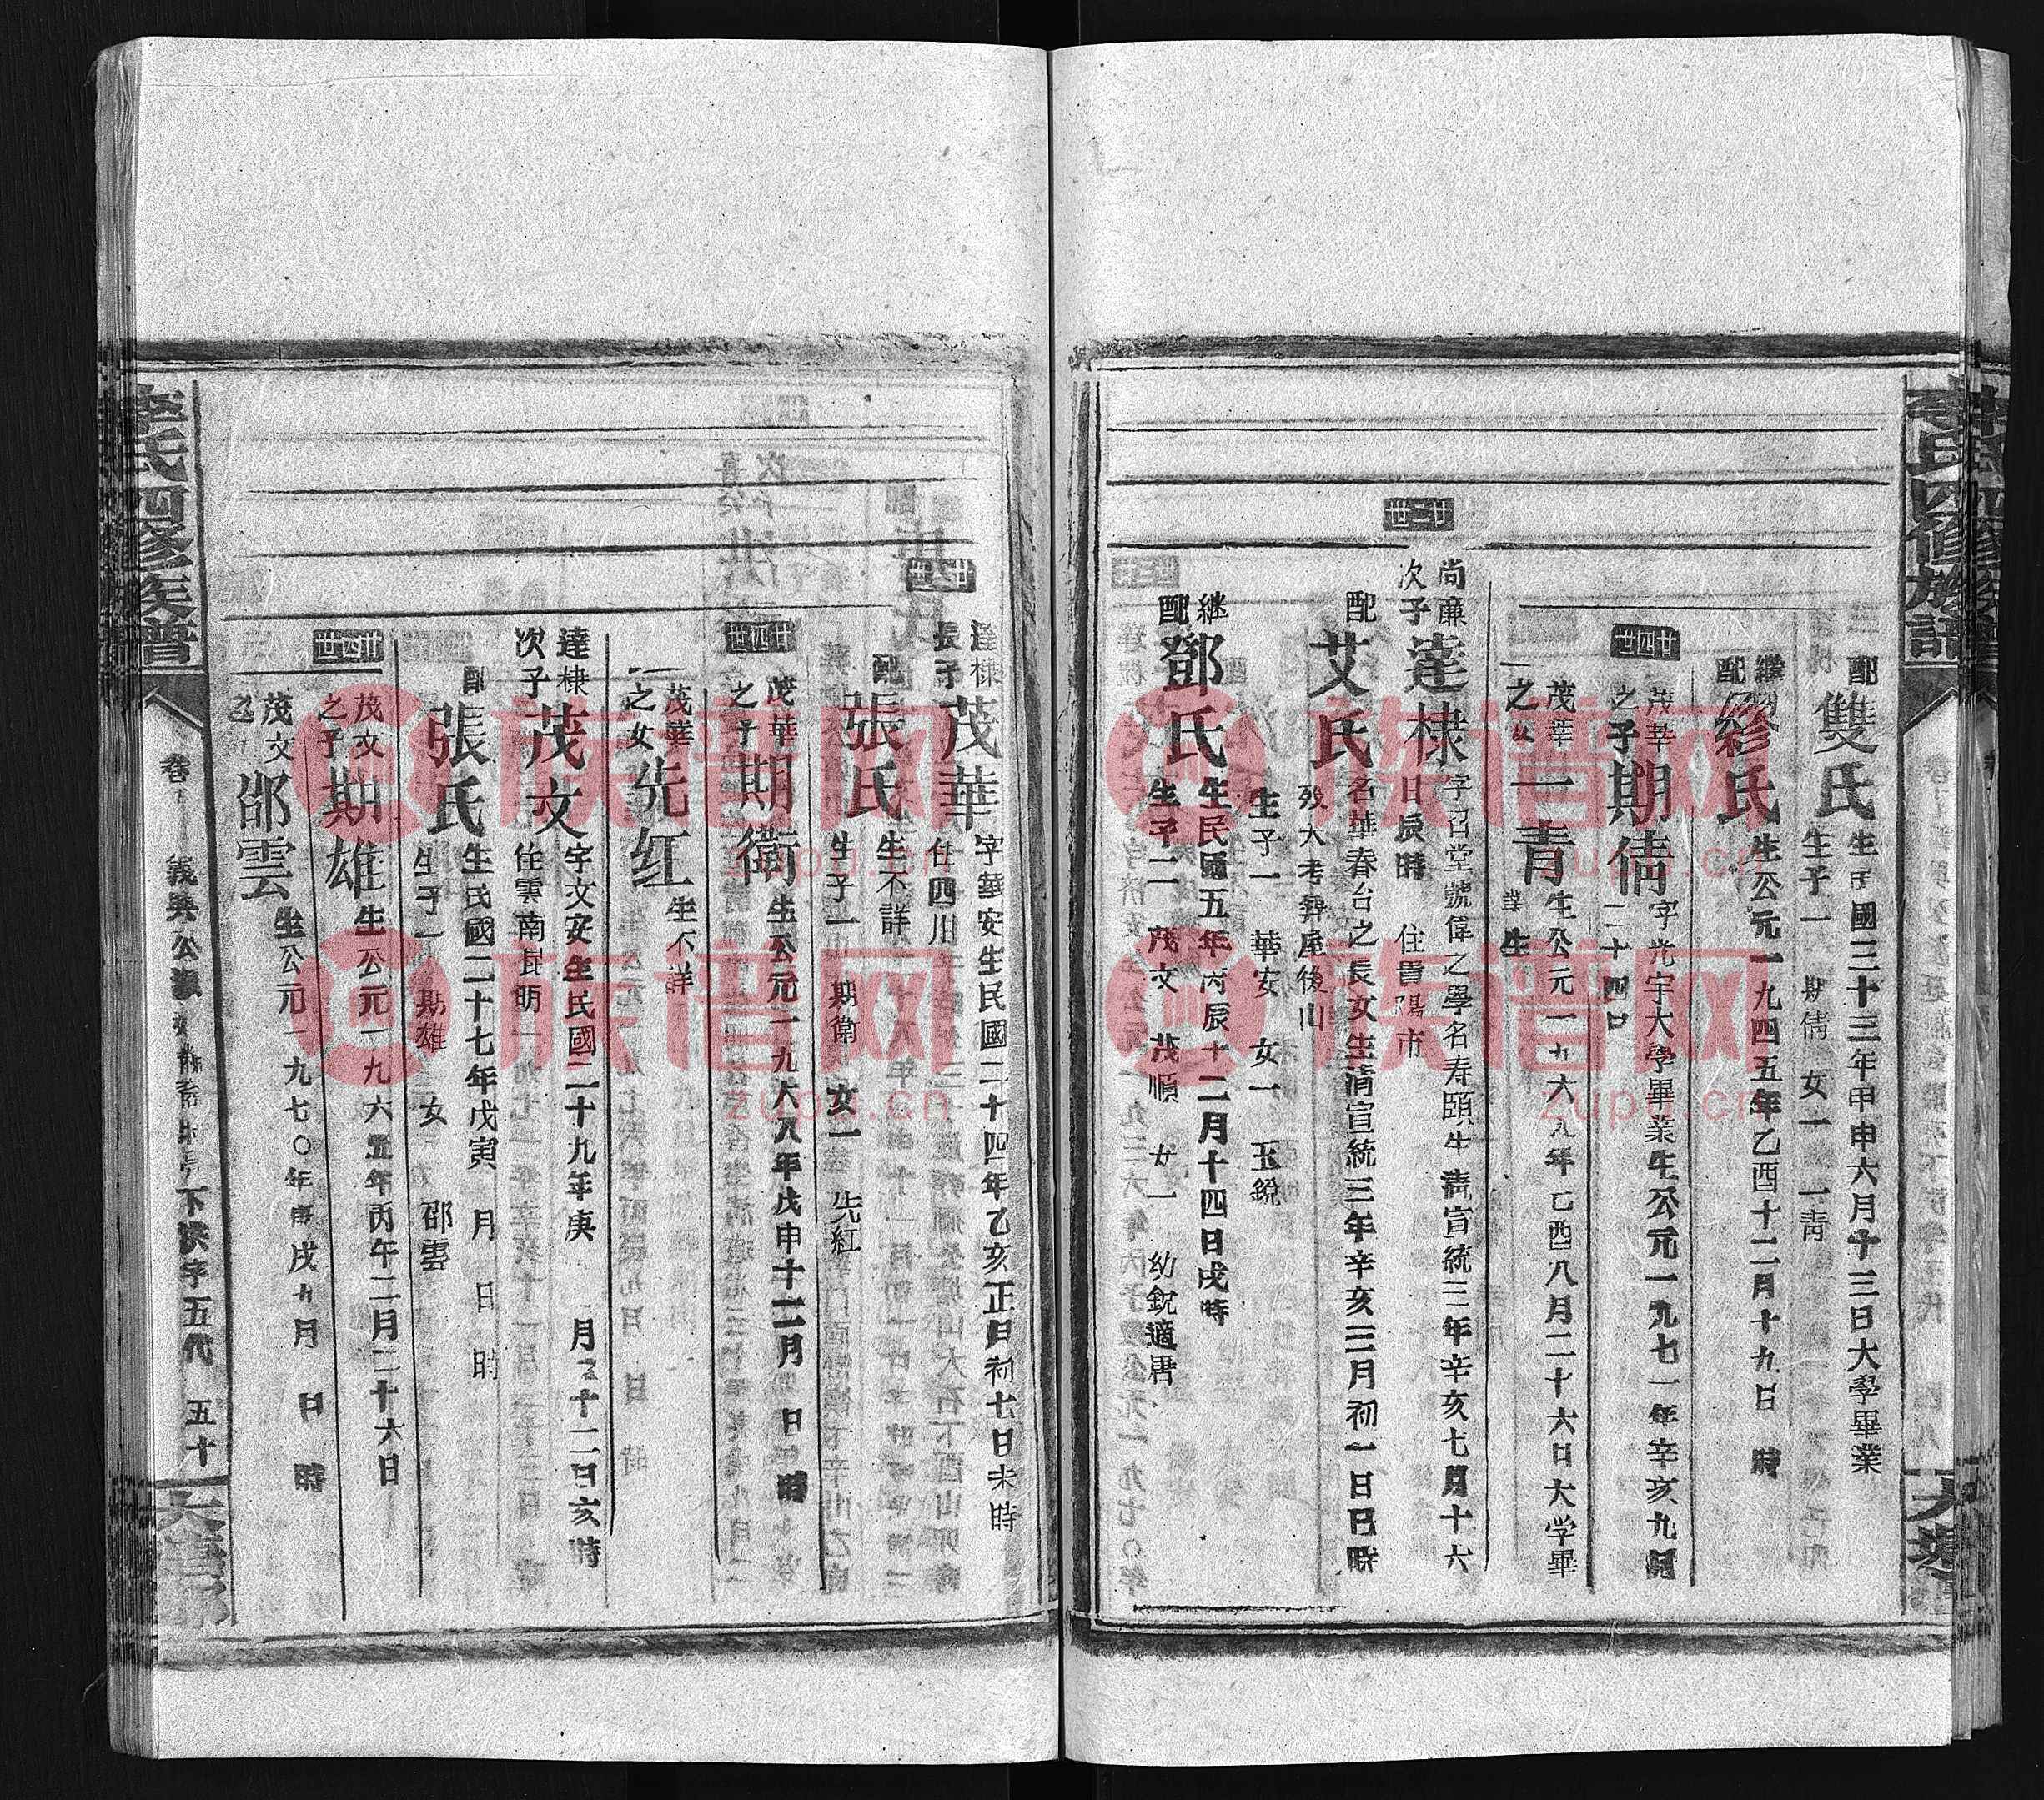 李氏四修族譜
配雙氏生子國三十三年甲申六月十三日大學畢業
生子一 期倩 女一 一靑
繼配彩氏生公元一九四五年乙酉十二月十九日 時
廿四世
茂華之子期倩字光宇大學畢業生公元一九七一年辛亥九月
二十四日
茂華之女一青生公元一九六九年乙酉八月二十六日大学畢
業生
廿二世
尚廉次子達棣字召堂號偉之學名寿頤生淸宣統三年辛亥七月十六
日辰時 住貴陽市
配艾氏名華春台之長女生清宣統三年辛亥三月初一日巳時
殁大考葬屋後山
生子一 華安 女一 玉銳
繼配鄧氏生民國五年丙辰十二月十四日戌時
生子二 茂文 茂順 女一 幼銳適唐
廿三世
達棣長子茂華字華安生民國二十四年乙亥正月初七日未時
住四川
配張氏生不詳
生子一 期衛 女一 先紅
廿四世
茂華之子期衛生公元一九六八年戊申十二月 日 時
茂華之女先红生不詳
達棣次子茂文字文安生民國二十九年庚 月 十二日亥時
住雲南昆明
配張氏生民國二十七年戊寅 月 日 時
生子一 期雄 女 邵雲
廿四世
茂文之子期雄生公元一九六五年丙午二月二十六日
茂文之 邵雲生公元一九七〇年庚戌九月 日 時
李氏四修族譜
義興公 下洪字五代 五十
族谱网
zupu.cn
族谱网
zupu.cn
族谱网
zupu.cn
族谱网
zupu.cn